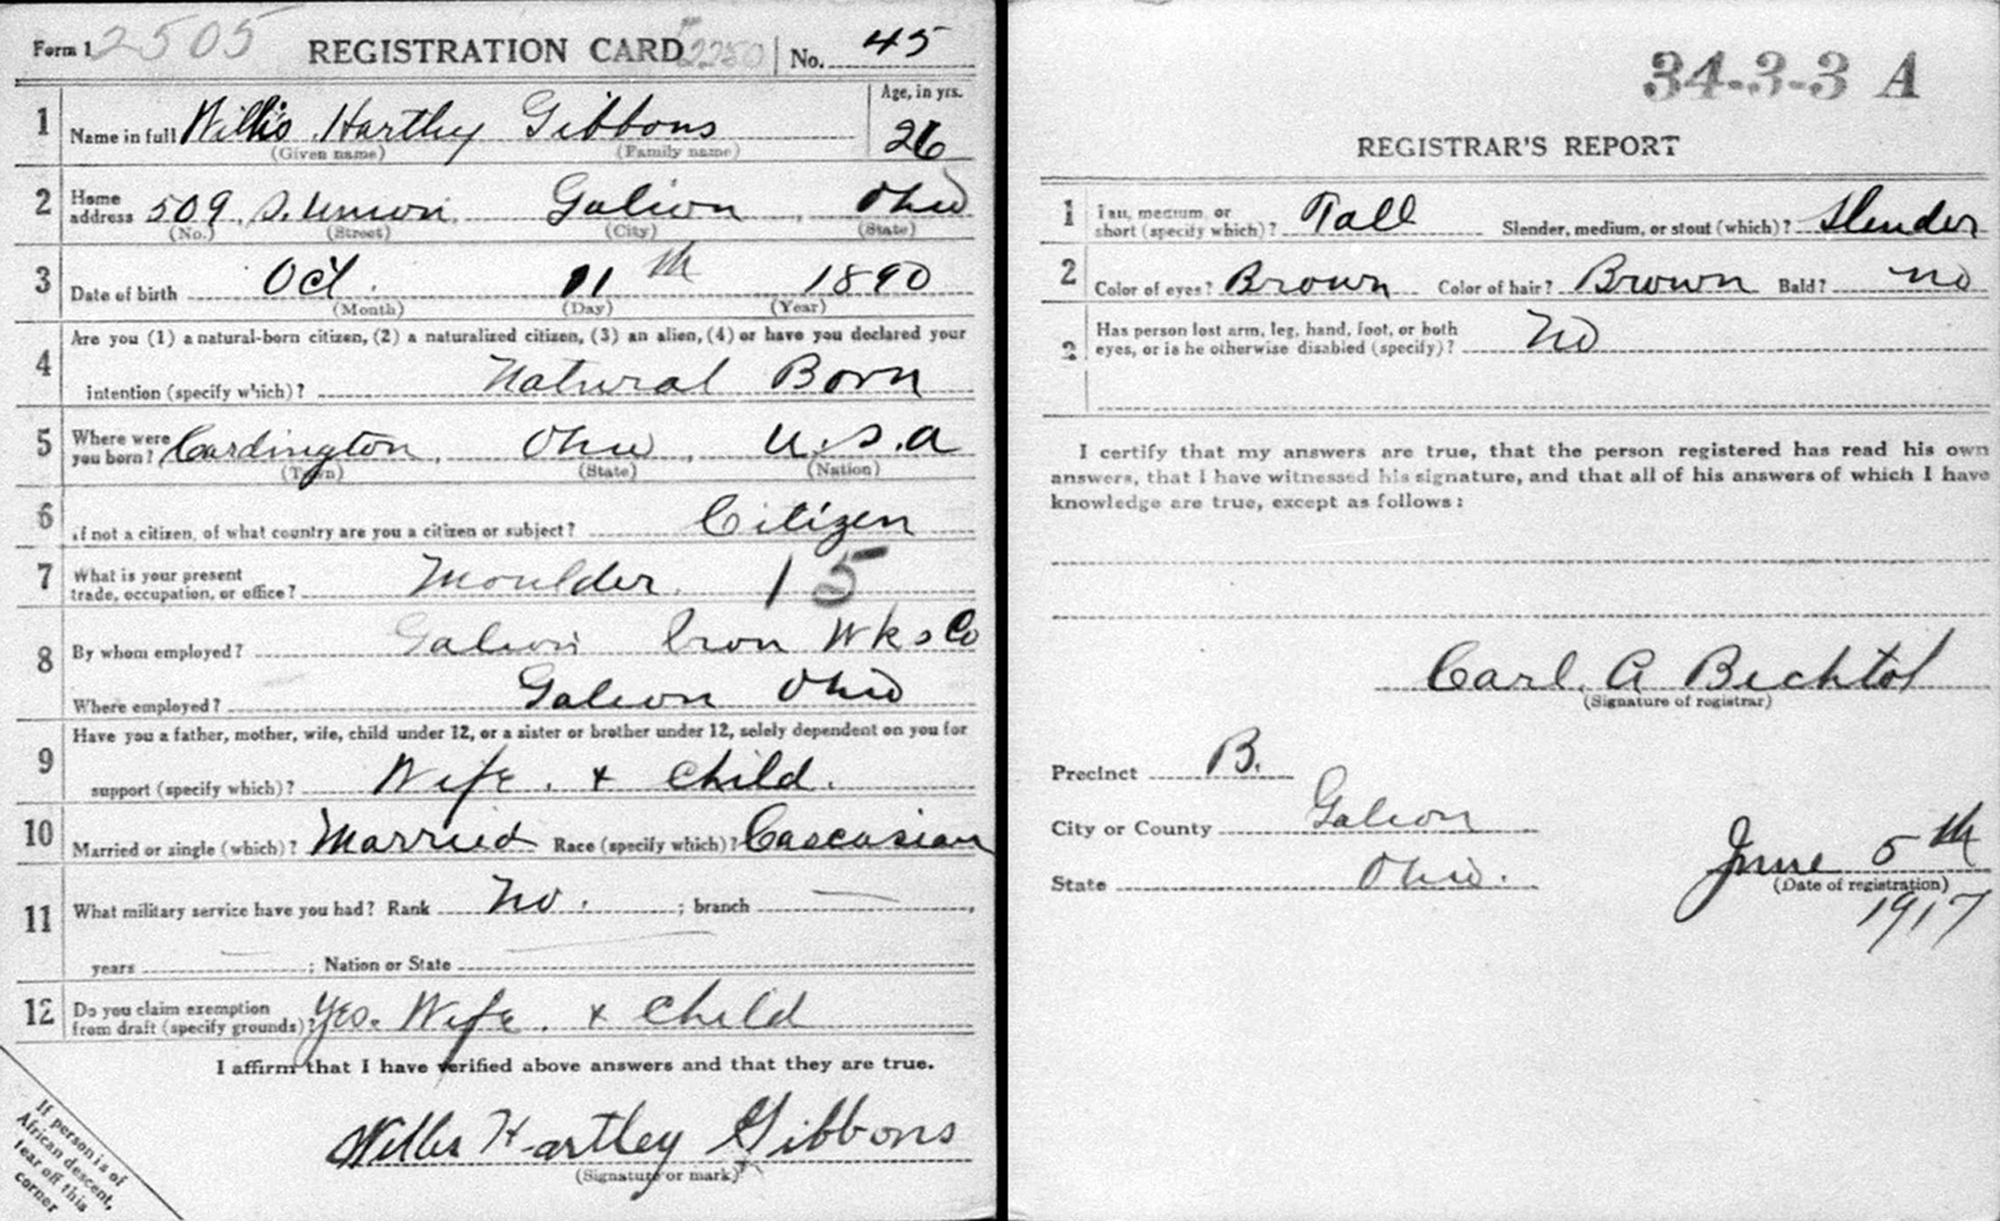 Form 1 2505 REGISTRATION CARD 2250 No. 45
1 Name in full Willis Hartley Gibbons Age, in yrs. 26
(Given name) (Family name)
2 Home address 509 S. Union, Galion, Ohio
(No.) (Street) (City) (State)
3 Date of birth Oct. 11th 1890
(Month) (Day) (Year)
4 Are you (1) a natural-born citizen, (2) a naturalized citizen, (3) an alien, (4) or have you declared your
intention (specify which)? Natural Born
5 Where were you born? Cardington, Ohio, U.S.A
(Town) (State) (Nation)
6 if not a citizen, of what country are you a citizen or subject? Citizen
7 What is your present
trade, occupation, or office? Moulder. 15
8 By whom employed? Galion Iron Wks Co
Where employed? Galion Ohio
9 Have you a father, mother, wife, child under 12, or a sister or brother under 12, solely dependent on you for
support (specify which)? Wife. + Child.
10 Married or single (which)? Married Race (specify which)? Cascasian
11 What military service have you had? Rank No. ; branch ,
years ; Nation or State
12 Do you claim exemption
from draft (specify grounds)? Yes. Wife. + Child
I affirm that I have verified above answers and that they are true.
Willis Hartley Gibbons
(Signature or mark)
If person is of
African descent,
tear off this
corner
34-3-3 A
REGISTRAR'S REPORT
1 Tall, medium, or
short (specify which)? Tall Slender, medium, or stout (which)? Slender
2 Color of eyes? Brown Color of hair? Brown Bald? no
3 Has person lost arm, leg, hand, foot, or both
eyes, or is he otherwise disabled (specify)? No
I certify that my answers are true, that the person registered has read his own
answers, that I have witnessed his signature, and that all of his answers of which I have
knowledge are true, except as follows:
Carl. A Bechtol
(Signature of registrar)
Precinct B.
City or County Galion
State Ohio.
June 5th
(Date of registration)
1917